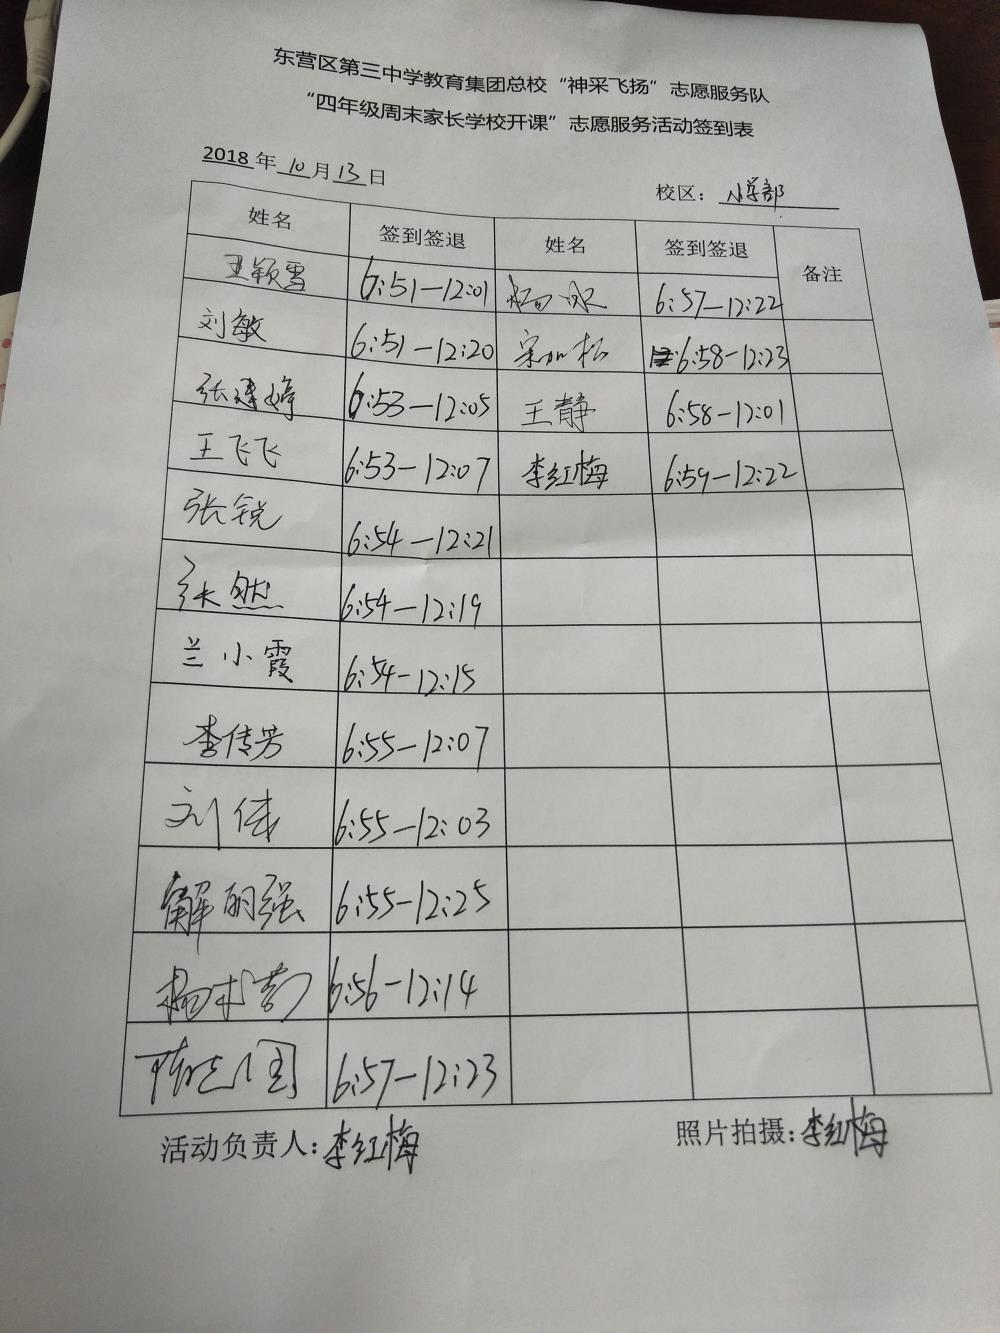 东营区第三中学教育集团总校“神采飞扬”志愿服务队
“四年级周末家长学校开课”志愿服务活动签到表
2018 年 10 月 13 日 校区： 小学部
姓名 签到签退 姓名 签到签退 备注
王颖雪 6:51—12:01 杨 6:57—12:22
刘敏 6:51—12:20 宋加松 6:58—12:23
张 6:53—12:05 王静 6:58—12:01
王飞飞 6:53—12:07 李红梅 6:59—12:22
张锐 6:54—12:21
张然 6:54—12:19
兰小霞 6:54—12:15
李传芳 6:55—12:07
刘伟 6:55—12:03
解明强 6:55—12:25
杨 6:56—12:14
陈 国 6:57—12:23
活动负责人：李红梅 照片拍摄：李红梅